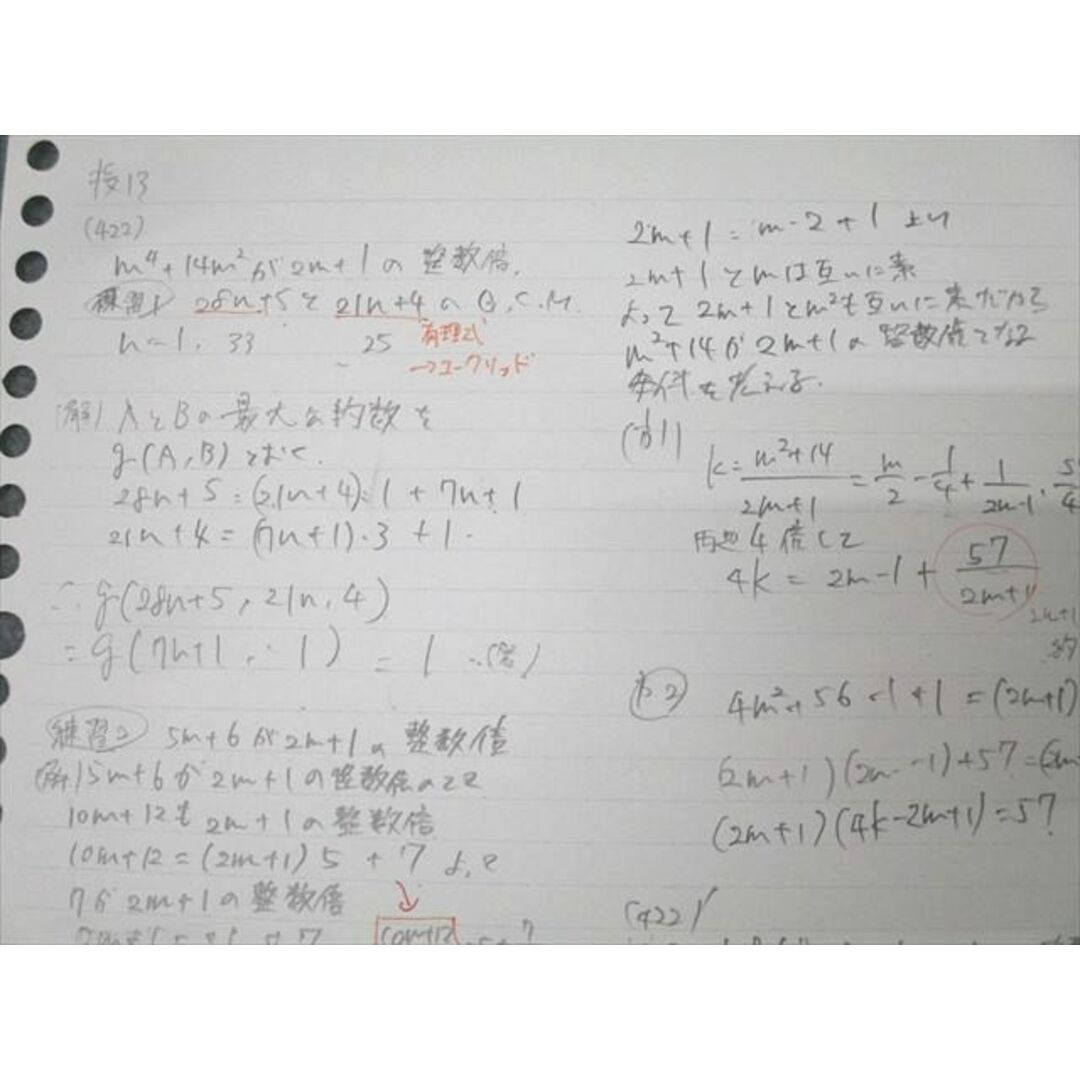 授13
(422)
m⁴+14m²が2m+1の整数倍.
練習1 28n+5と21n+4のG.C.M.
n=1, 33 25 有理式
→ユークリッド
(解) AとBの最大公約数を
g(A,B)とおく.
28n+5=(21n+4)・1+7n+1
21n+4=(7n+1)・3+1.
∴g(28n+5, 21n, 4)
=g(7n+1, 1)=1 …(答)
練習2 5m+6が2m+1の整数倍
(解)5m+6が2m+1の整数倍のとき
10m+12も2m+1の整数倍
10m+12=(2m+1)5+7 よって
7が2m+1の整数倍
10m+12
2m+1=m・2+1 より
2m+1とmは互いに素
よって 2m+1とm²も互いに素だから
m²+14が2m+1の整数倍となる
条件を考える.
(方1)
k=m²+14/2m+1=m/2-1/4+1/2m+1・5
両辺4倍して
4k=2m-1+57/2m+1
2m+1
約
方2 4m²+56-1+1=(2m+1)
(2m+1)(2m-1)+57=(2m
(2m+1)(4k-2m+1)=57
(422)'